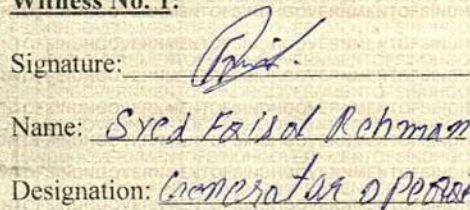 Witness No. 1:
Signature:
Name: Syed Faisal Rehman
Designation: Generator